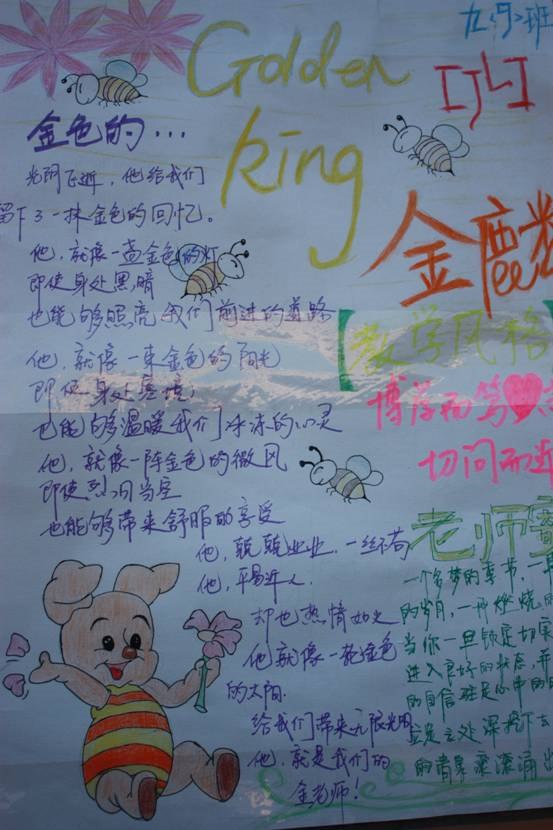 九<9>班
Golden
king
金鹿
金色的...
光阴飞逝，他给我们
留下了一抹金色的回忆。
他，就像一盏金色的灯
即使身处黑暗
也能够照亮我们前进的道路
他，就像一束金色的阳光
即使身处
也能够温暖我们冰冻的心灵
他，就像一阵金色的微风
即使烈日当空
也能够带来舒服的享受
他，兢兢业业，一丝不苟
他，平易近人，
却也热情如火
他就像一轮金色
的太阳，
给我们带来无限光明
他，就是我们的
金老师！
【教学风格
博学而笃
切问而近
老师
一个多梦的季节，一
的岁月，一种燃烧的
当你一旦锁定切实
进入良好的状态，并
的自信驻足心中的
企足之处深挖下去
的清泉滚滚涌出